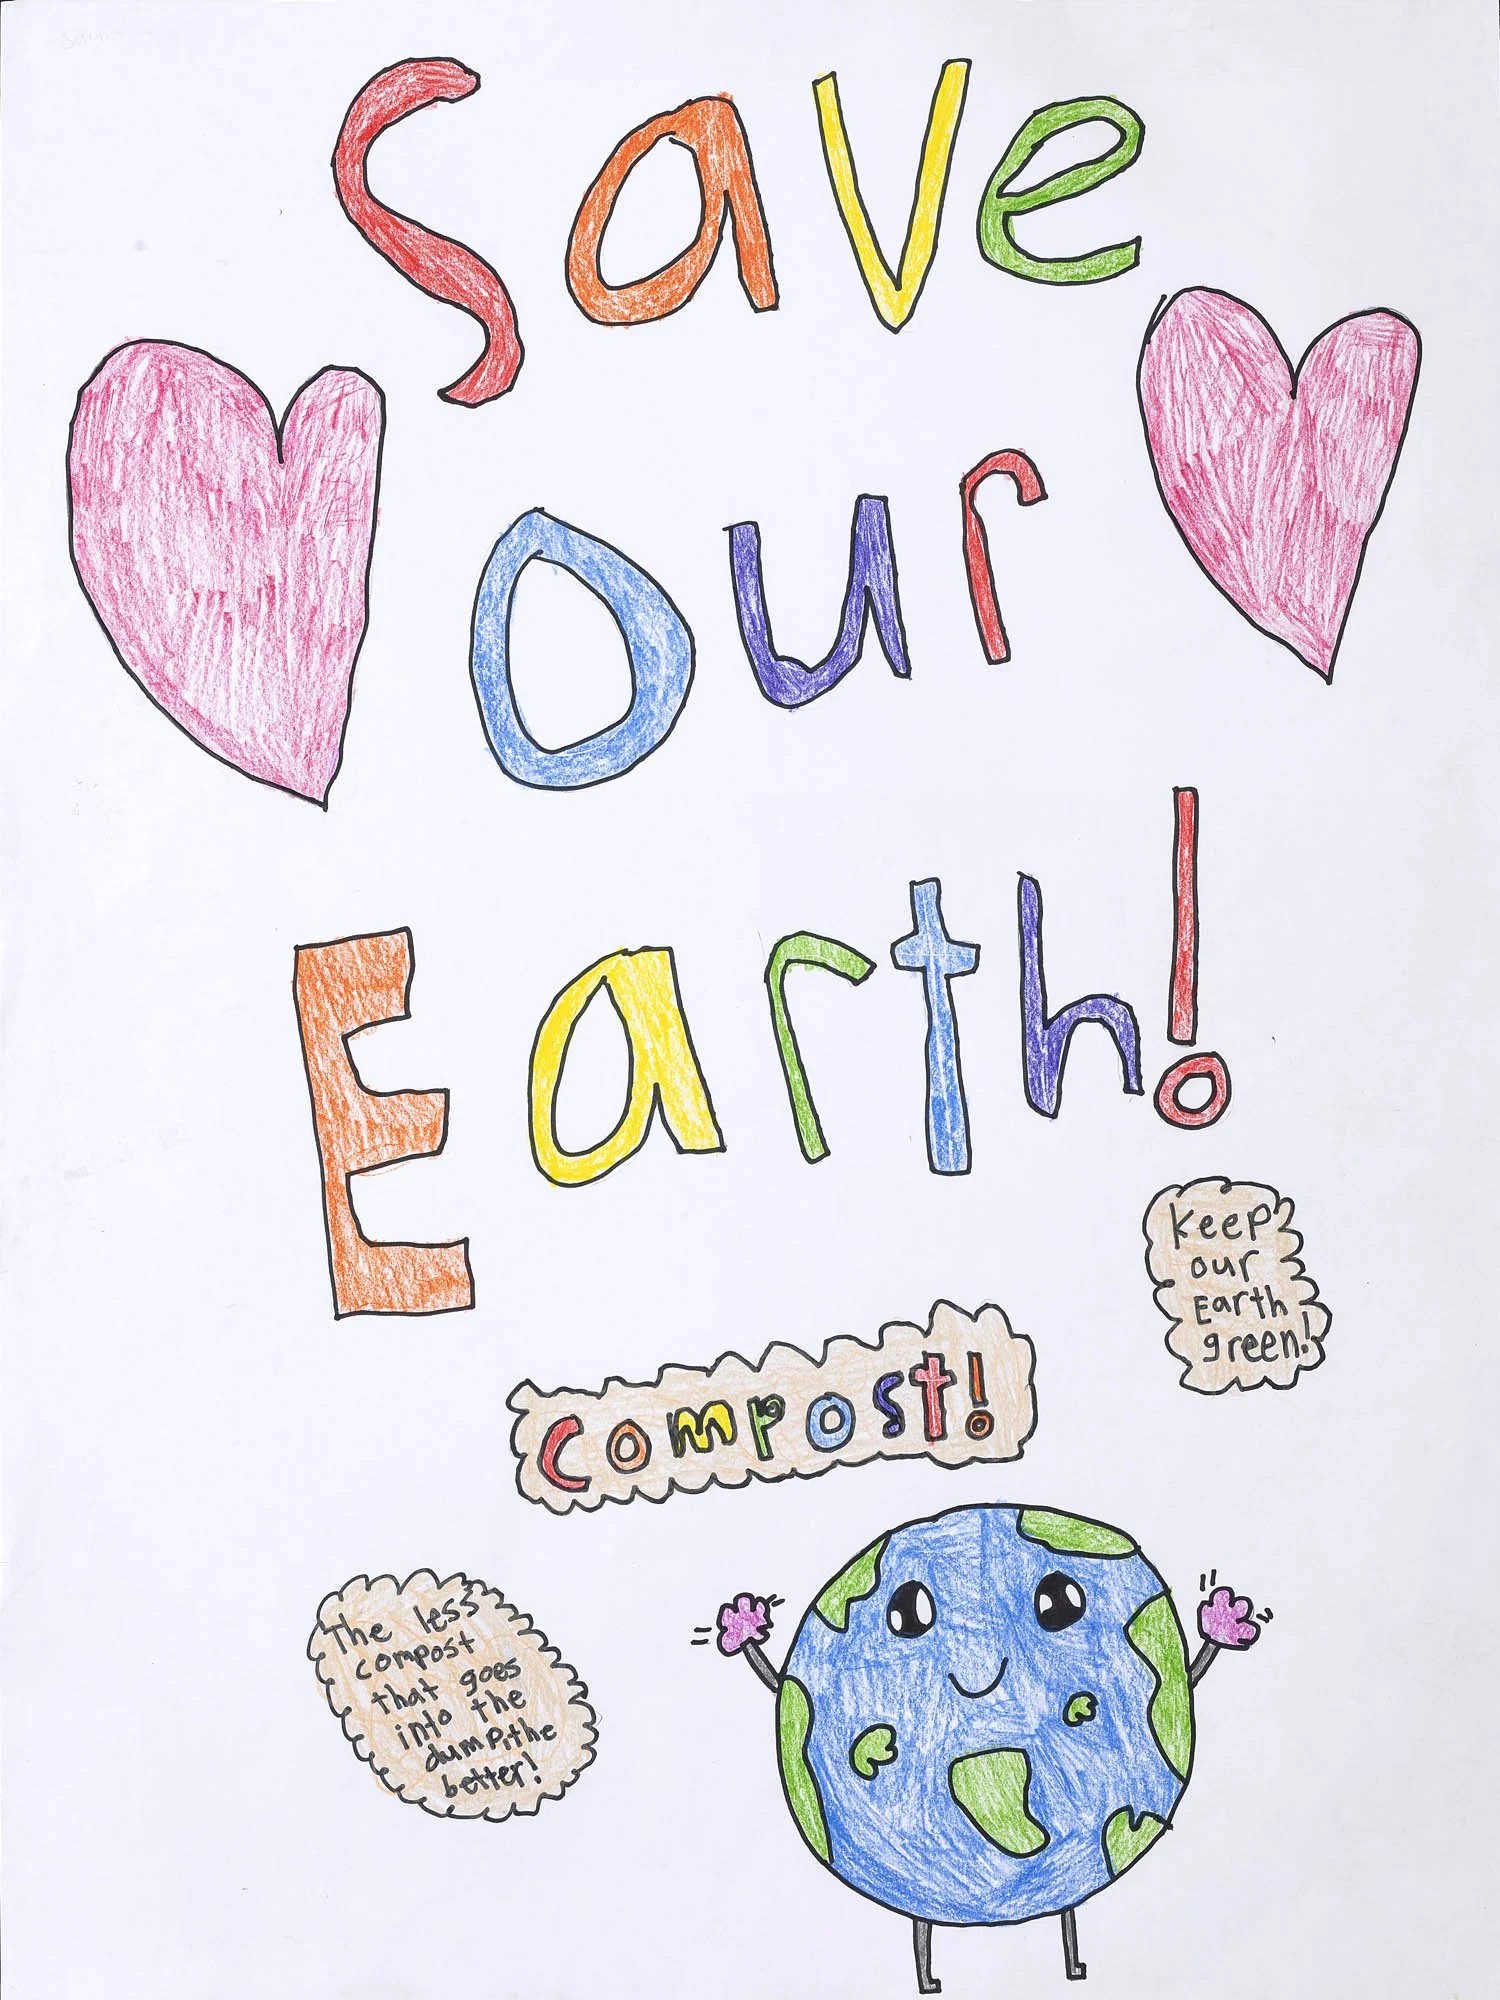 Save
our
Earth!
Keep
our
Earth
green!
compost!
The less
compost
that goes
into the
dump,the
better!